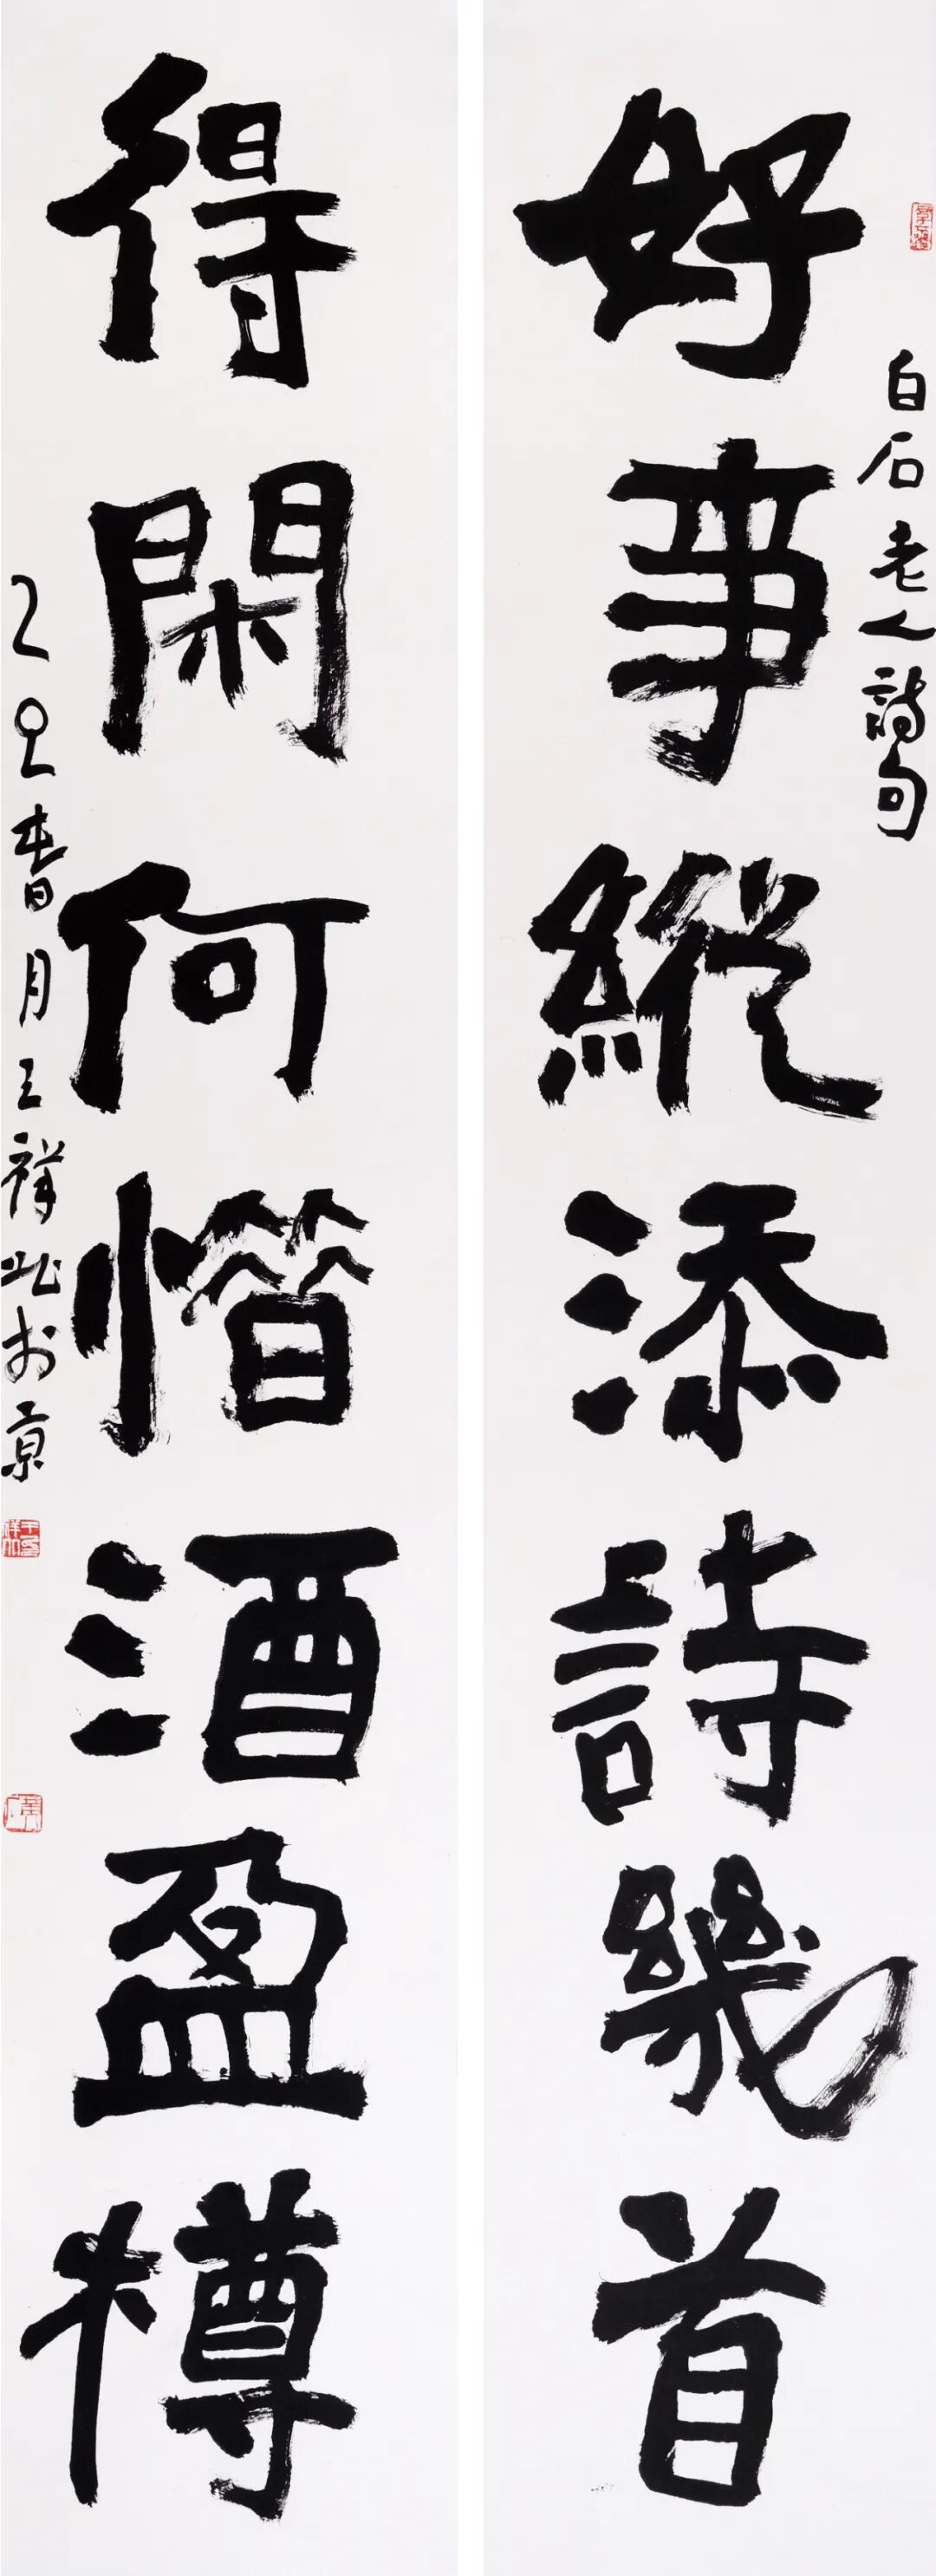 白石老人詩句
好事縱添詩幾首
得閑何惜酒盈樽
乙巳春月王祥北於京